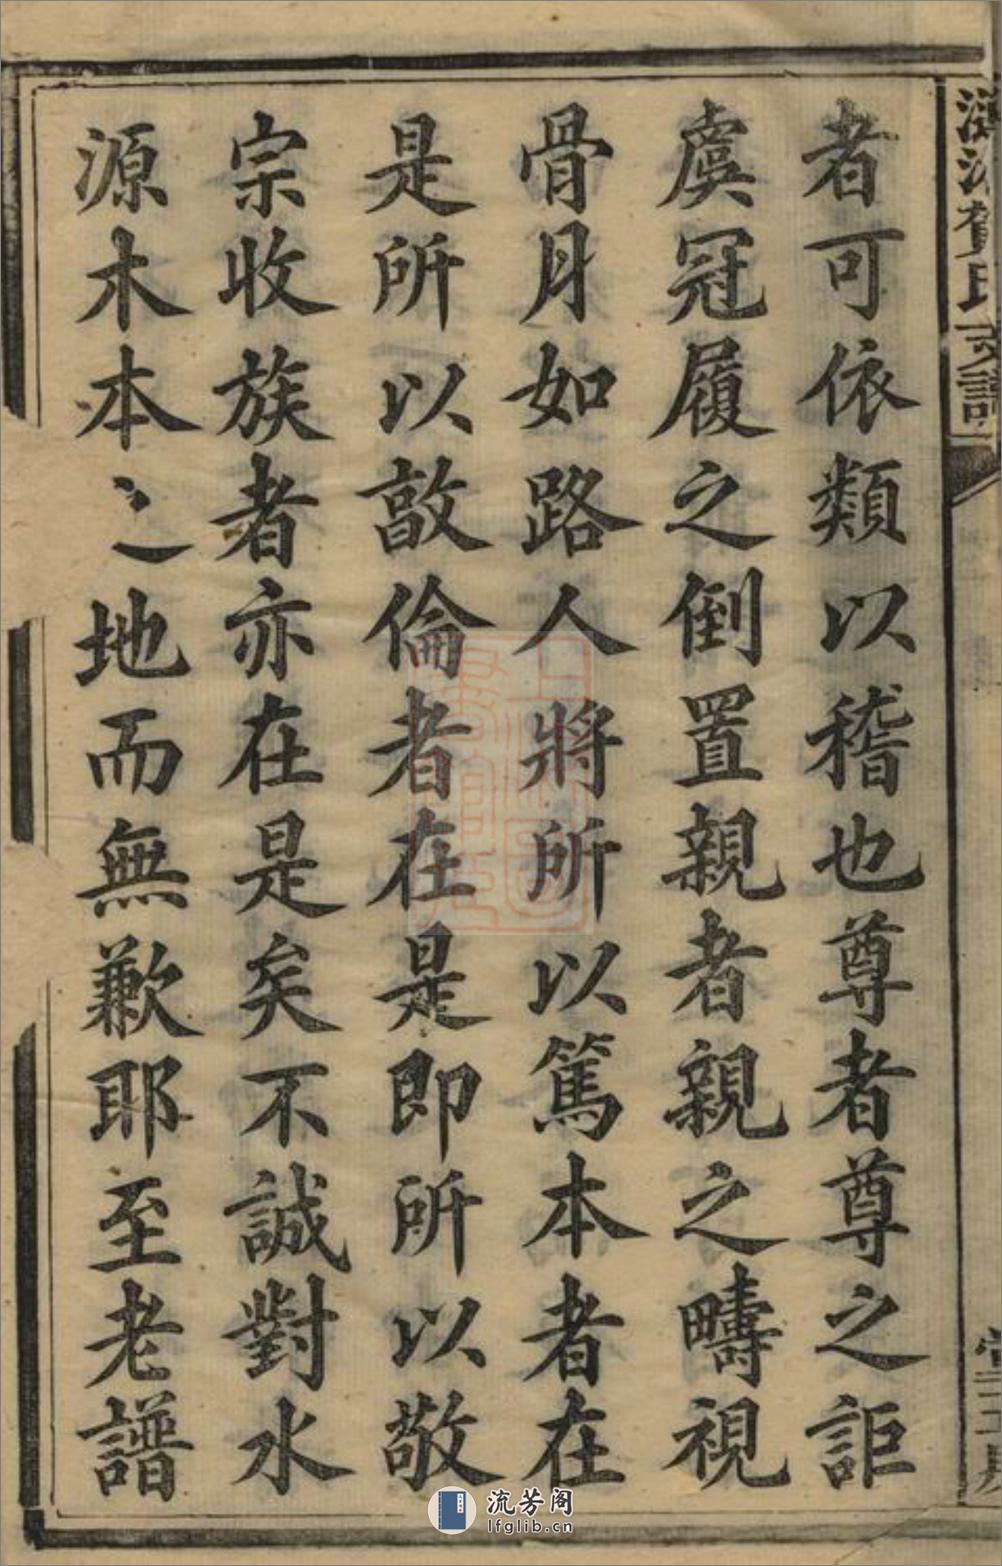 賀氏支譜
者可依類以稽也尊者尊之詎
虞冠履之倒置親者親之疇視
骨月如路人將所以篤本者在
是所以敦倫者在是即所以敬
宗收族者亦在是矣不誠對水
源木本之地而無歉耶至老譜
流芳阁
lfglib.cn